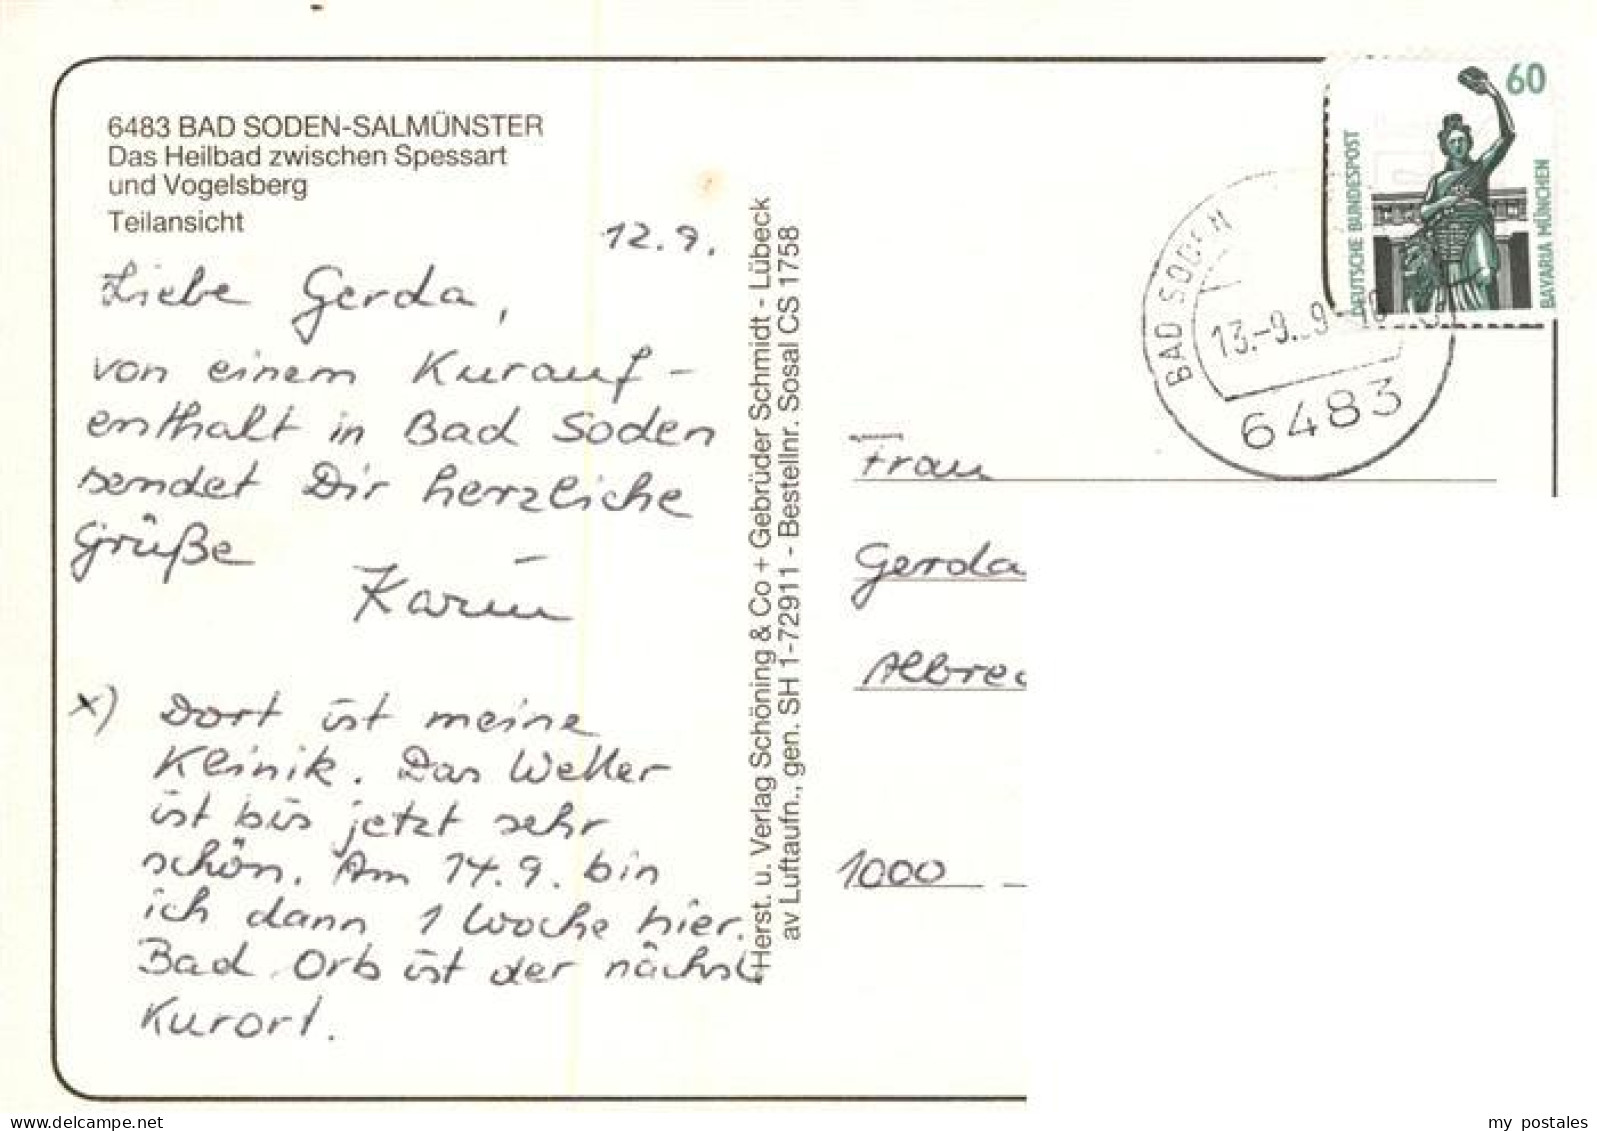 6483 BAD SODEN-SALMÜNSTER
Das Heilbad zwischen Spessart
und Vogelsberg
Teilansicht
12.9.
Liebe Gerda,
von einem Kurauf-
enthalt in Bad Soden
sendet Dir herzliche
Grüße
Karin
x) Dort ist meine
Klinik. Das Wetter
ist bis jetzt sehr
schön. Am 14.9. bin
ich dann 1 Woche hier.
Bad Orb ist der nächste
Kurort.
Herst. u. Verlag Schöning & Co + Gebrüder Schmidt - Lübeck
av Luftaufn., gen. SH 1-72911 - Bestellnr. Sosal CS 1758
60
DEUTSCHE BUNDESPOST
BAVARIA MÜNCHEN
BAD SODEN
13.-9.
6483
Frau
Gerda
Albrec
1000
delcampe.net
my_postales